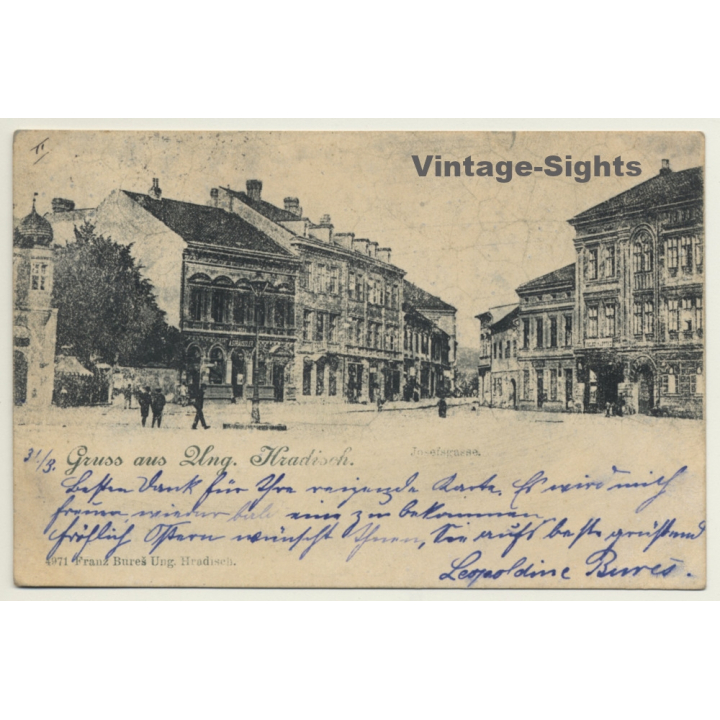 Vintage-Sights
II
31/3.
Gruss aus Ung. Hradisch.
Josefstrasse.
Besten Dank für Ihre reizende Karte. Es wird mich
freuen wieder bald eine zu bekommen
fröhlich Ostern wünscht Ihnen, Sie aufs beste grüßend
Leopoldine Bureš.
4971 Franz Bureš Ung. Hradisch.